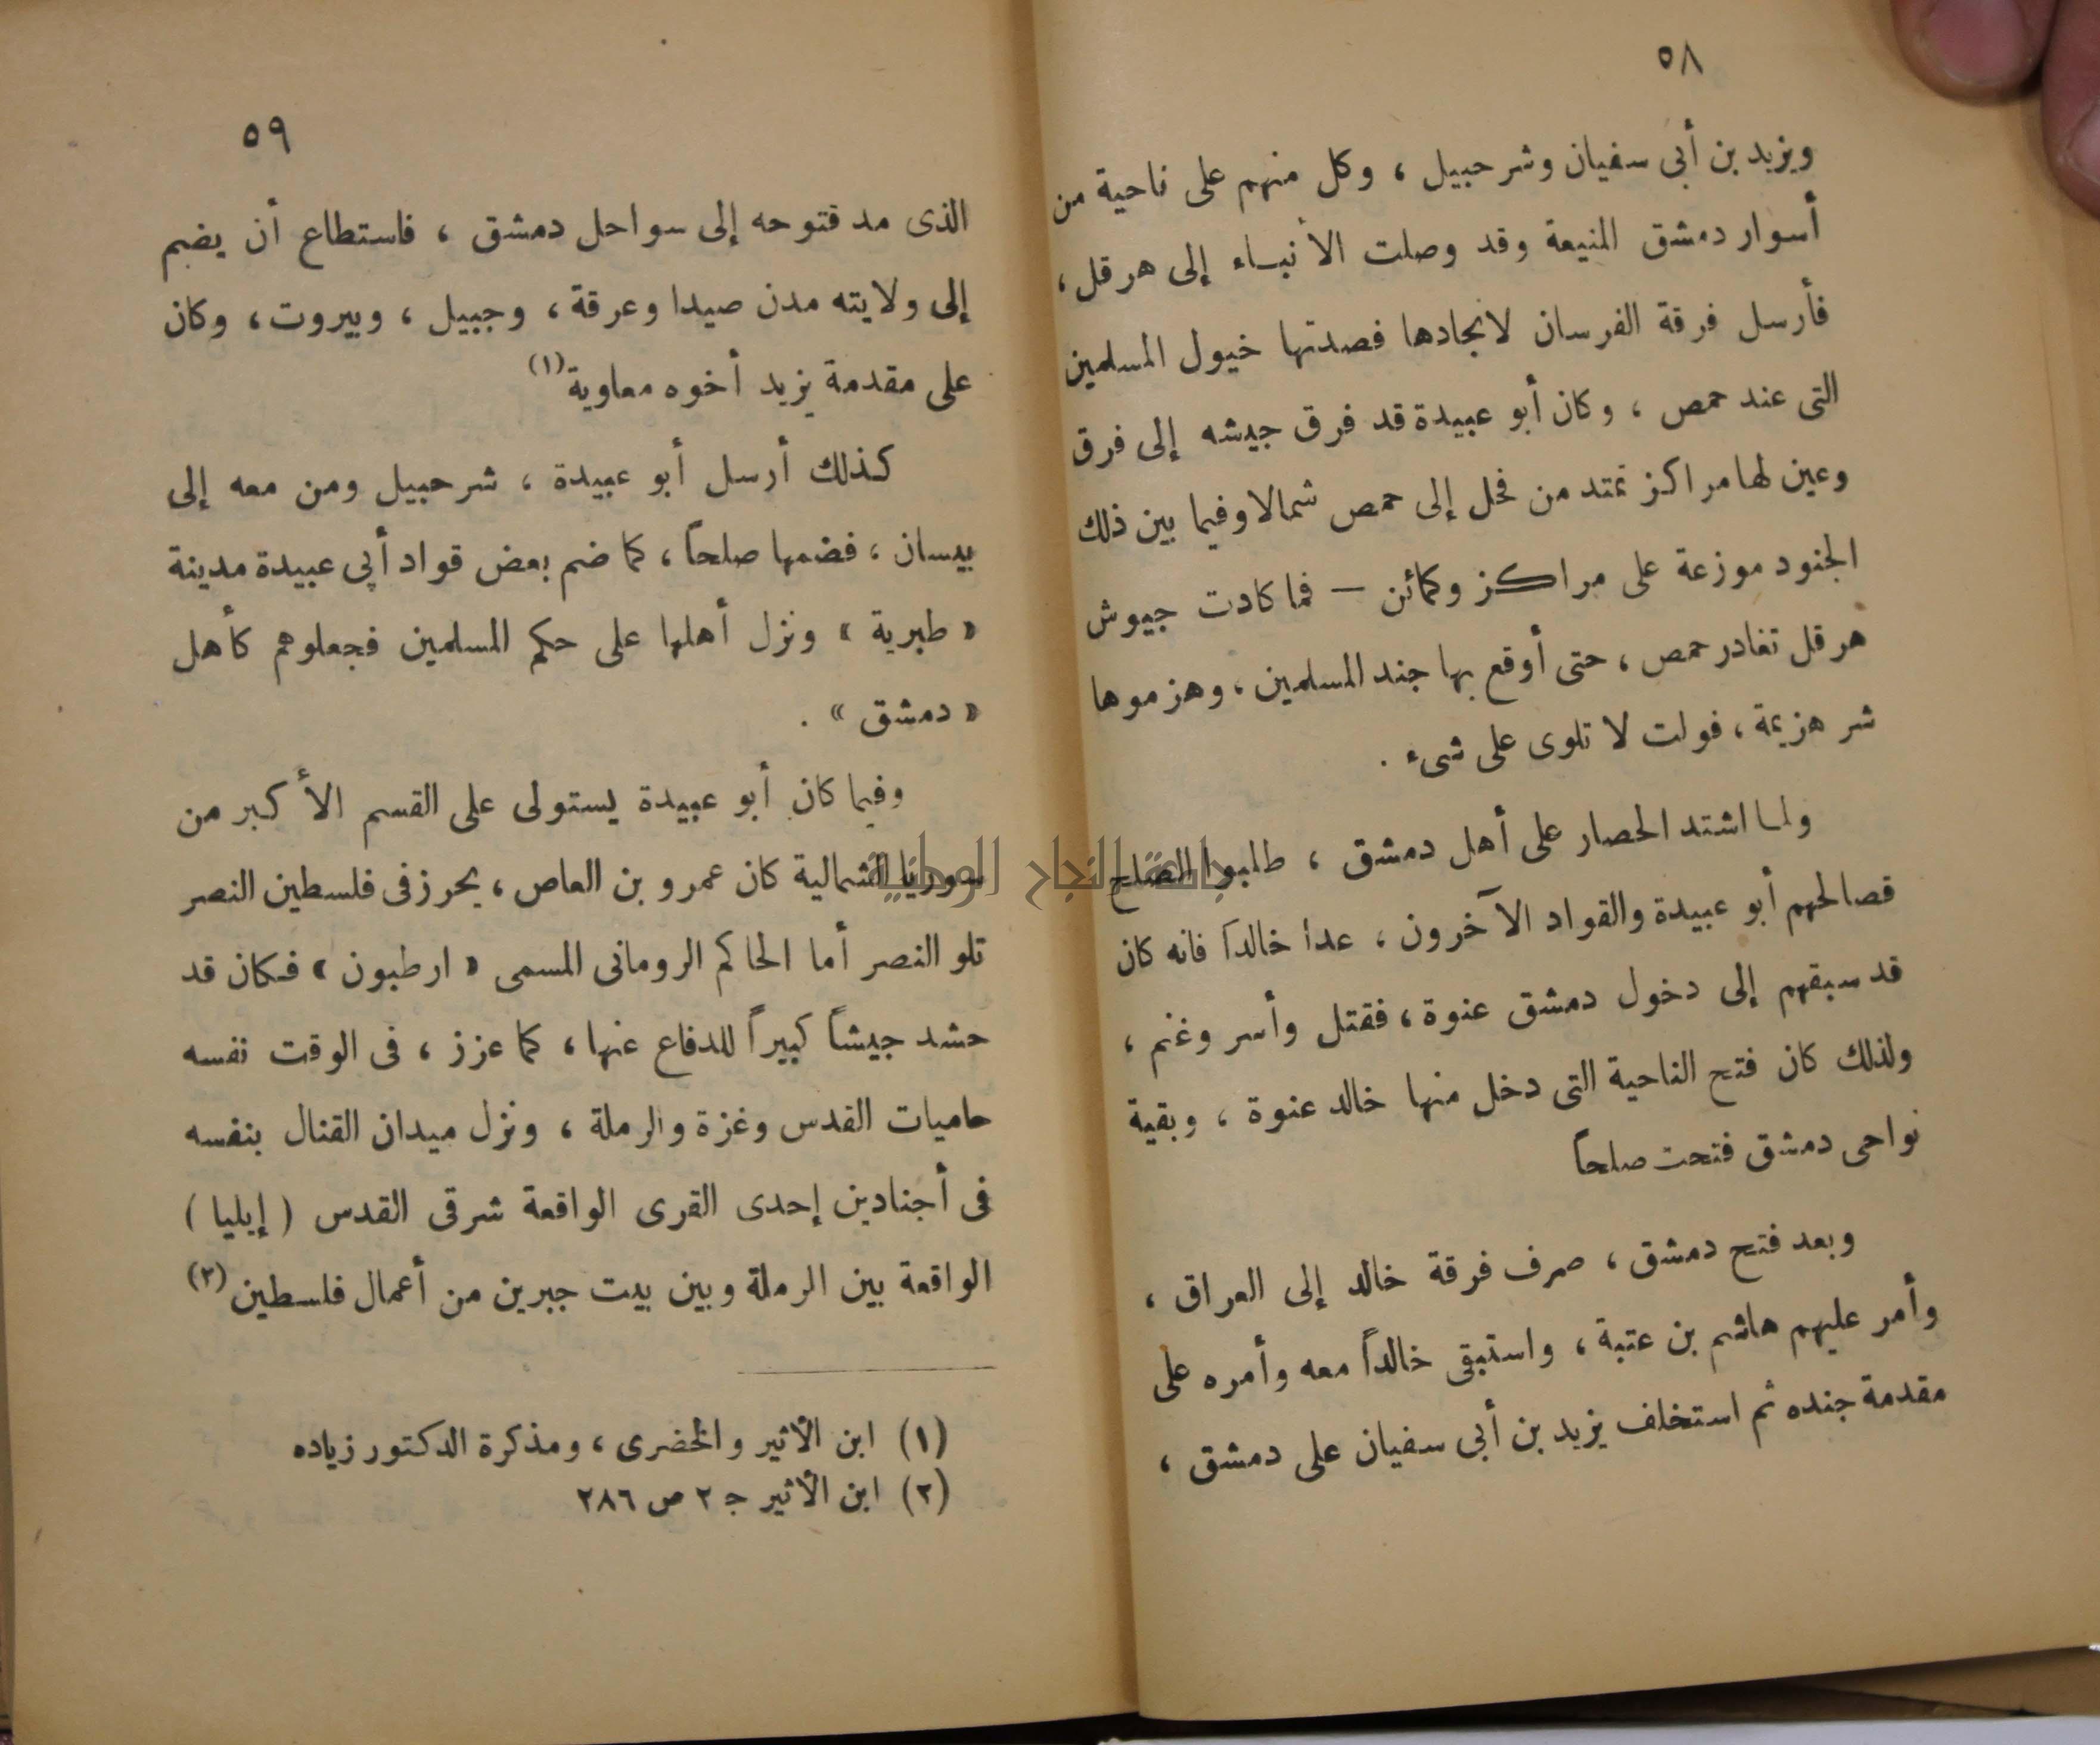 ٥٨
ويزيد بن أبى سفيان وشرحبيل ، وكل منهم على ناحية من
أسوار دمشق المنيعة وقد وصلت الأنبـاء إلى هرقل ،
فأرسل فرقة الفرسان لانجادها فصدتها خيول المسلمين
التى عند حمص ، وكان أبو عبيدة قد فرق جيشه إلى فرق
وعين لها مراكز تمتد من فحل إلى حمص شمالا وفيما بين ذلك
الجنود موزعة على مراكز وكمائن — فما كادت جيوش
هرقل تغادر حمص ، حتى أوقع بها جند المسلمين ، وهزموها
شر هزيمة ، فولت لا تلوى على شىء .
ولما اشتد الحصار على أهل دمشق ، طلبوا الصلح
فصالحهم أبو عبيدة والقواد الآخرون ، عدا خالداً فانه كان
قد سبقهم إلى دخول دمشق عنوة ، فقتل وأسر وغنم ،
ولذلك كان فتح الناحية التى دخل منها خالد عنوة ، وبقية
نواحى دمشق فتحت صلحاً
وبعد فتح دمشق ، صرف فرقة خالد إلى العراق ،
وأمر عليهم هاشم بن عتبة ، واستبقى خالداً معه وأمره على
مقدمة جنده ثم استخلف يزيد بن أبى سفيان على دمشق ،
٥٩
الذى مد فتوحه إلى سواحل دمشق ، فاستطاع أن يضم
إلى ولايته مدن صيدا وعرقة ، وجبيل ، وبيروت ، وكان
على مقدمة يزيد أخوه معاوية (١)
كذلك أرسل أبو عبيدة ، شرحبيل ومن معه إلى
بيسان ، فضمها صلحاً ، كما ضم بعض قواد أبى عبيدة مدينة
« طبرية » ونزل أهلها على حكم المسلمين فجعلوهم كأهل
« دمشق » .
وفيما كان أبو عبيدة يستولى على القسم الأكبر من
سوريا الشمالية كان عمرو بن العاص ، يحرز فى فلسطين النصر
تلو النصر أما الحاكم الرومانى المسمى « ارطبون » فكان قد
حشد جيشاً كبيراً للدفاع عنها ، كما عزز ، فى الوقت نفسه
حاميات القدس وغزة والرملة ، ونزل ميدان القتال بنفسه
فى أجنادين إحدى القرى الواقعة شرقى القدس ( إيليا )
الواقعة بين الرملة وبين بيت جبرين من أعمال فلسطين (٢)
(١) ابن الأثير والخضرى ، ومذكرة الدكتور زياده
(٢) ابن الأثير ج ٢ ص ٢٨٦
جامعة النجاح الوطنية